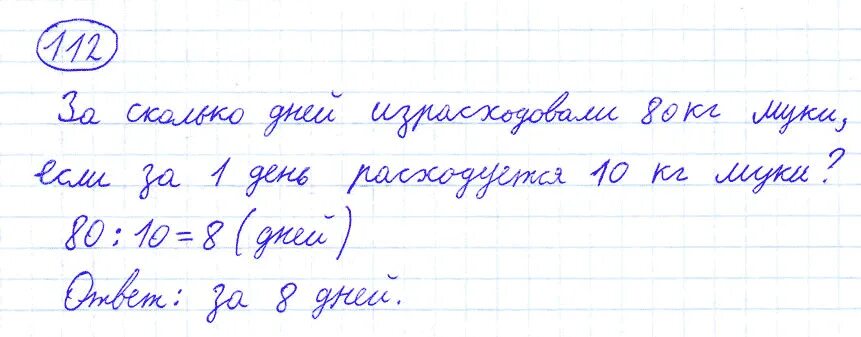 112
За сколько дней израсходовали 80 кг муки,
если за 1 день расходуется 10 кг муки?
80 : 10 = 8 (дней)
Ответ: за 8 дней.